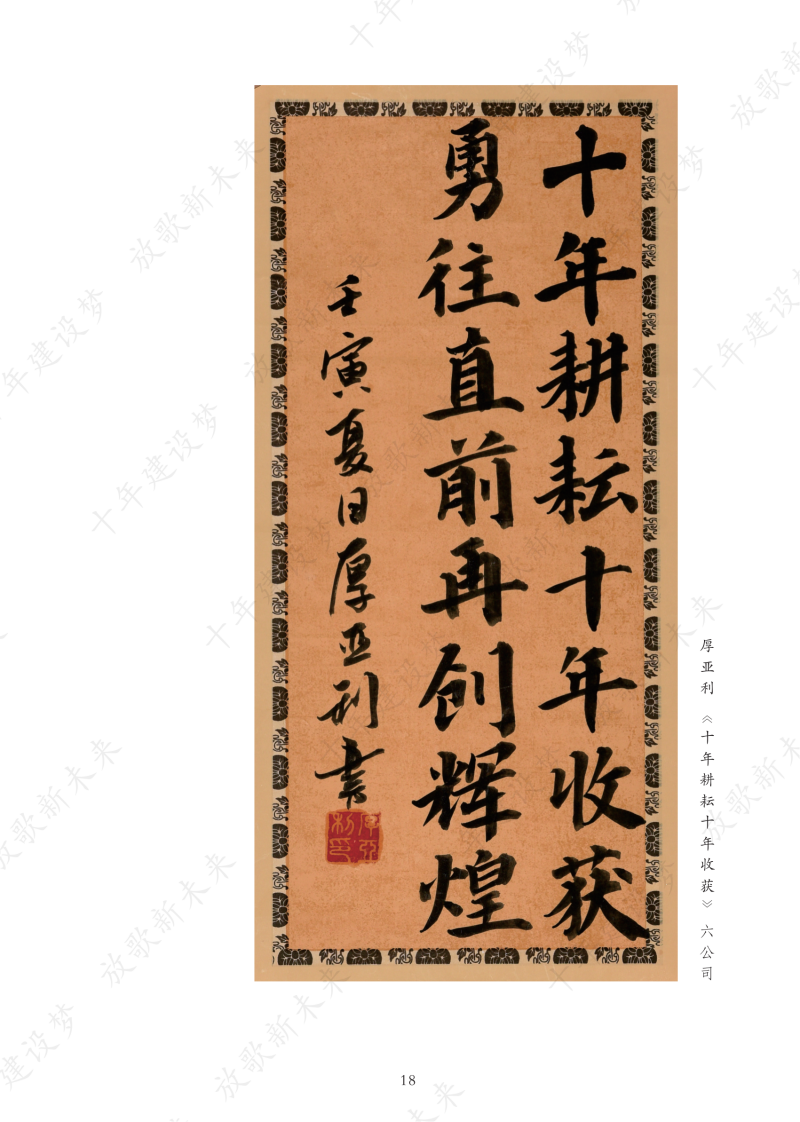 十年耕耘十年收获
勇往直前再创辉煌
壬寅夏日厚亚利书
厚亚利印
厚亚利 《十年耕耘十年收获》 六公司
18
十年建设梦 放歌新未来